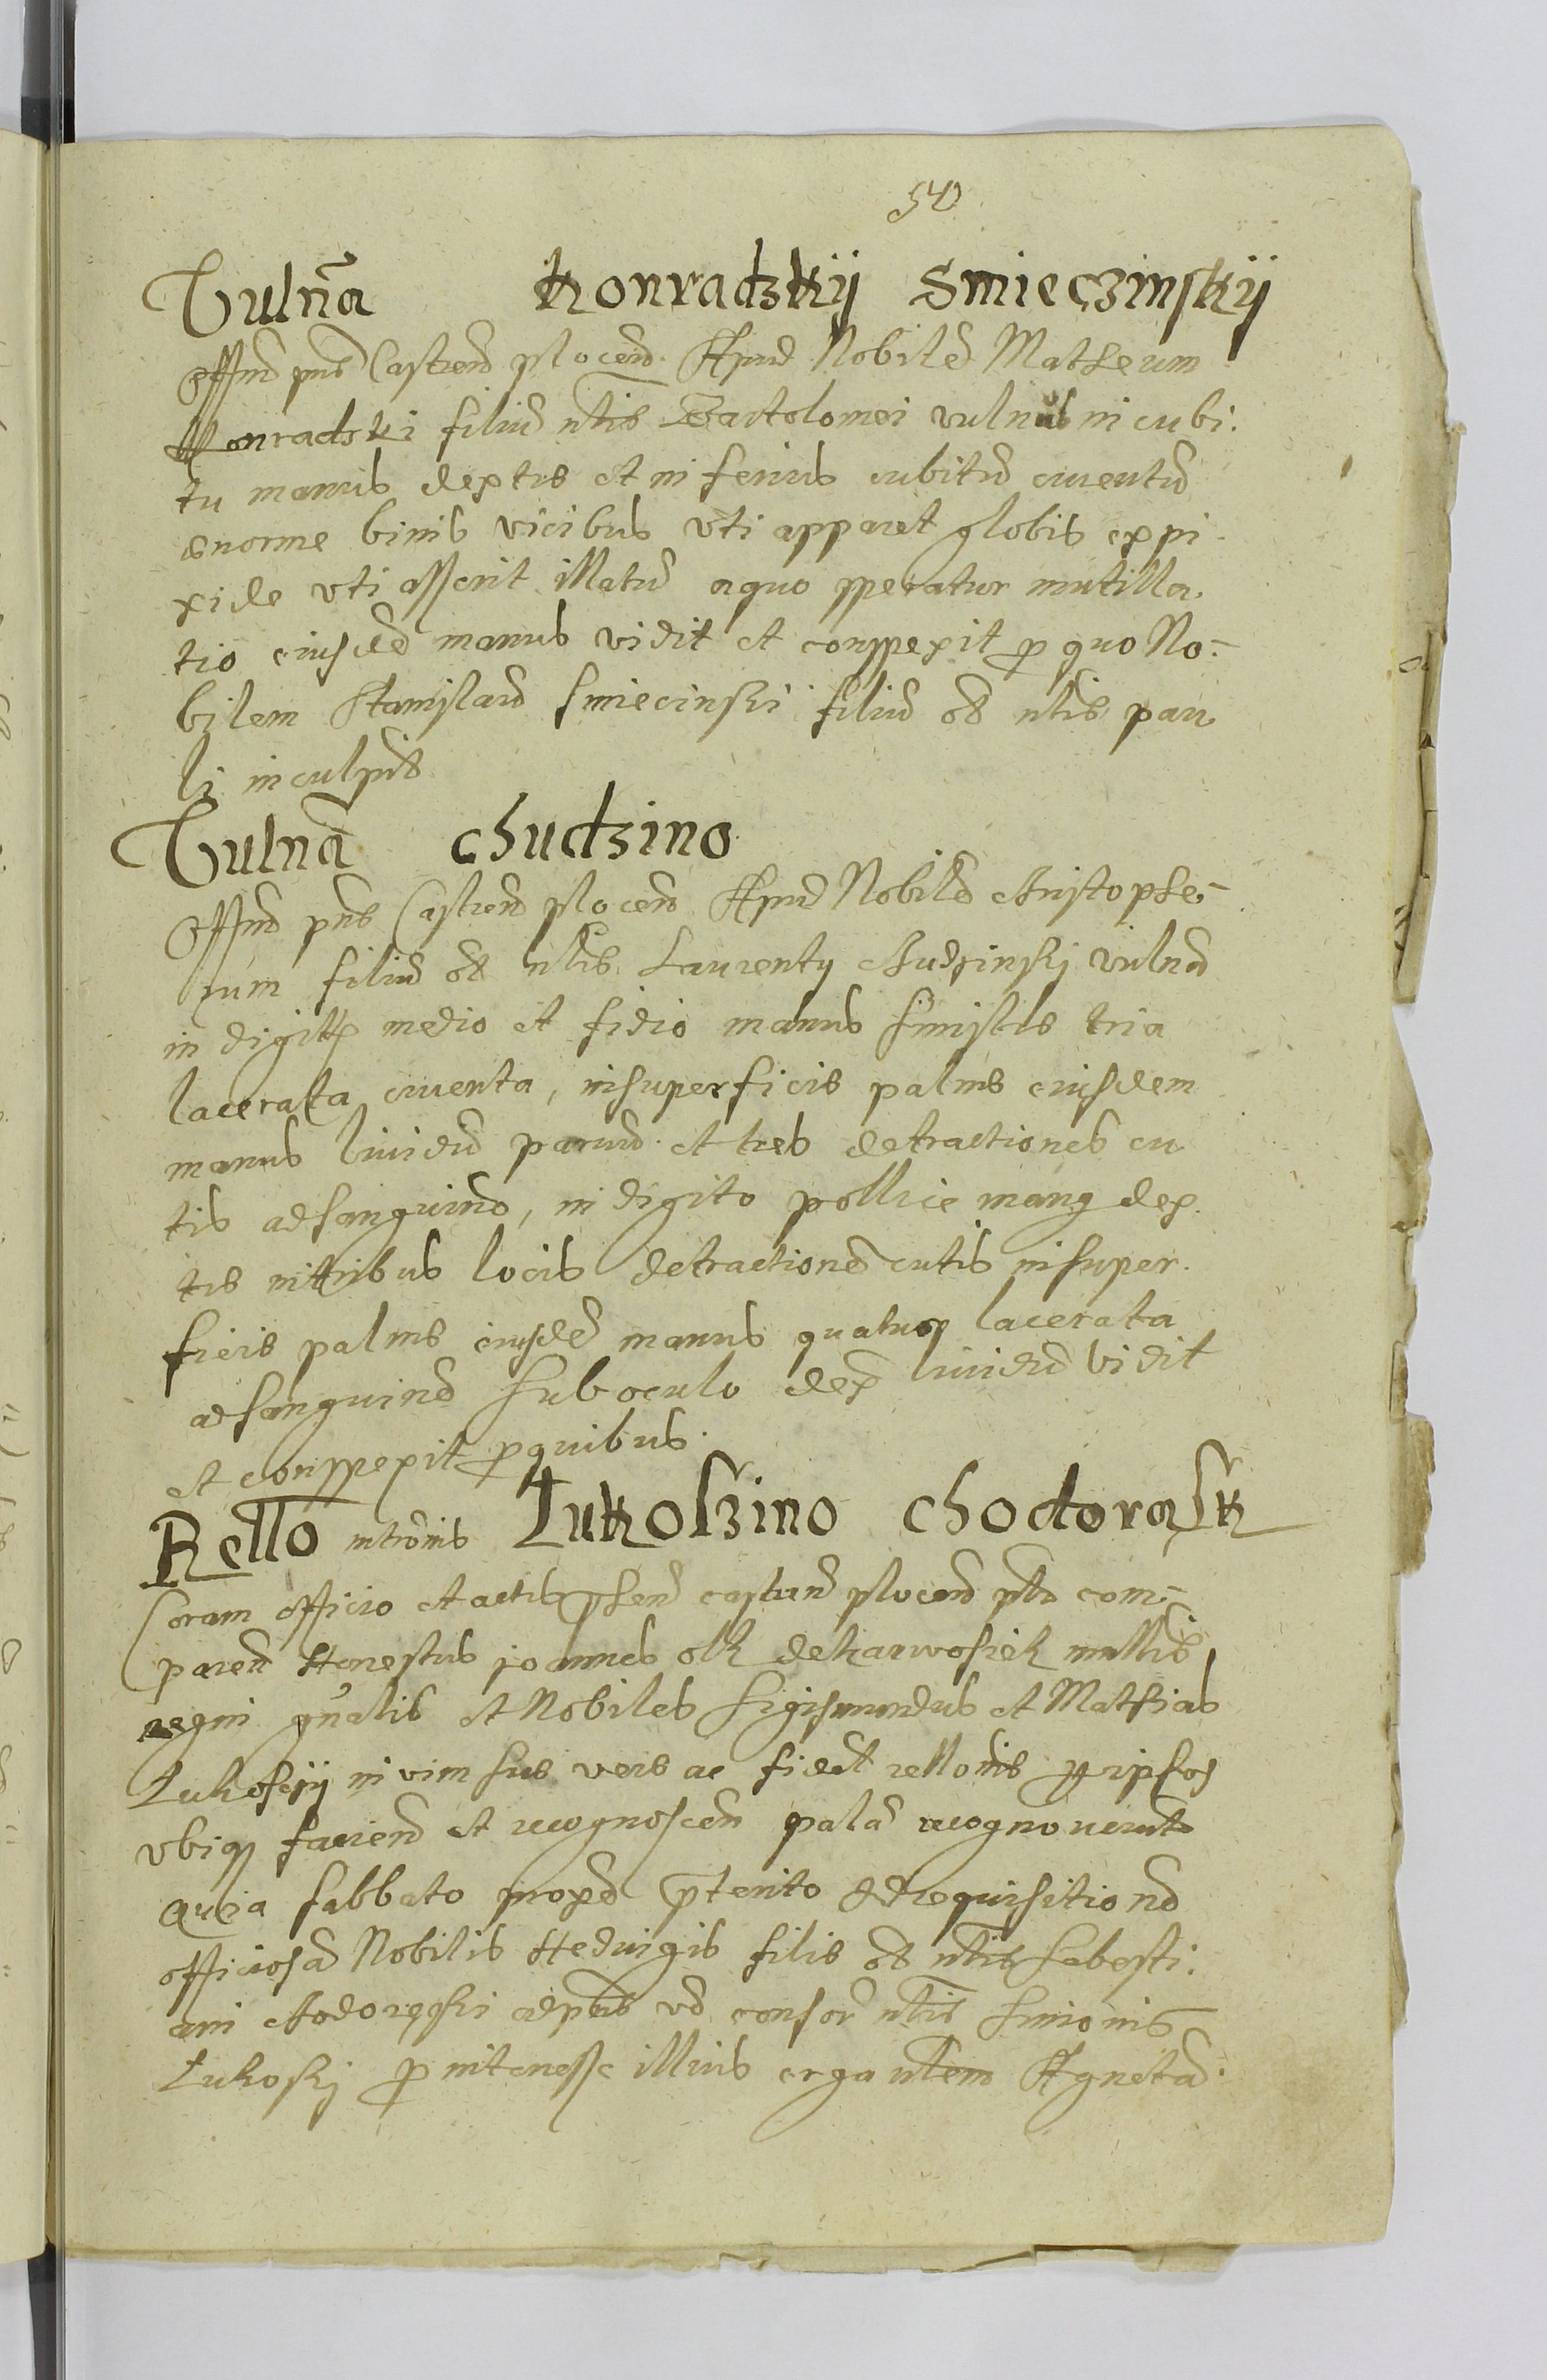 50
Vulnã Konradzkij Smieczinskij
Offmd pns Castrend plocend Apud Nobilẽ Matheum
Konradzki filiũ nlis Bartolomei vulnus in cubi:
tu manus dextrs et inferius cubitũ cruentũ
enorme binis vicibus vti apparet globis ex pi
xide vti asserit illatũ a quo speratur mutilla
tio eiusdẽ manus vidit et conspexit p quo No-
bilem Stanislaũ Smiecinski filiũ os nlis pau
li inculpat
Vulnã Chudzino
Offmd pns Castrend plocend Apud Nobilẽ Christophe-
rum filiũ os nlis Laurentij Chudzinskj vulna
in digitis medio et fidio manus sinistrs tria
lacerata cruenta, in superficie palms eiusdem
manus liuidũ paruũ et tres detractiones cu
tis ad sanguinẽ, in digito pollice manus dex
trs in tribus locis detractionẽ cutis in super
ficie palms eiusdẽ manus quatuor lacerata
ad sanguinẽ sub oculo dex liuidũ vidit
et conspexit p quibus.
Rello intrõnis Lukoszino Chodorask
Coram officio et actis phend castren plocend pls com-
paren Honestus Joannes olk de karwosiek mlis
regni gnalis et Nobiles Sigismundus et Mathias
Lukoscij in vim sus vers ac fidel rellonis p ipsos
vbiq facien et recognoscen palã recognouerunt
quia sabbato proxẽ pterito ad requisitionẽ
officiosã Nobilis Hedvigis filis os nlis Sebesti:
ani Chodorãski ad pns vo consor nlis Simonis
Lukoskj p intenesse illius erga nlem Agnetã